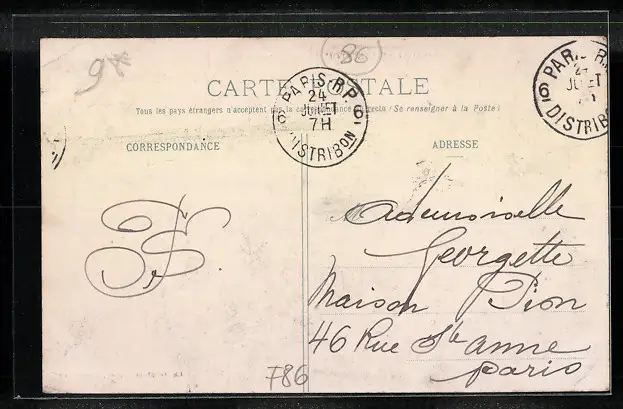 86
9*
CARTE POSTALE
Tous les pays étrangers n'acceptent pas la correspondance au recto (Se renseigner à la Poste)
PARIS R.P.
24
JUILET
7H
6 6
DISTRIBON
PARIS R.P.
24
JUILET
6
DISTRIB
CORRESPONDANCE
ADRESSE
Mademoiselle
Georgette
Maison Pion
46 Rue Ste anne
Paris
786